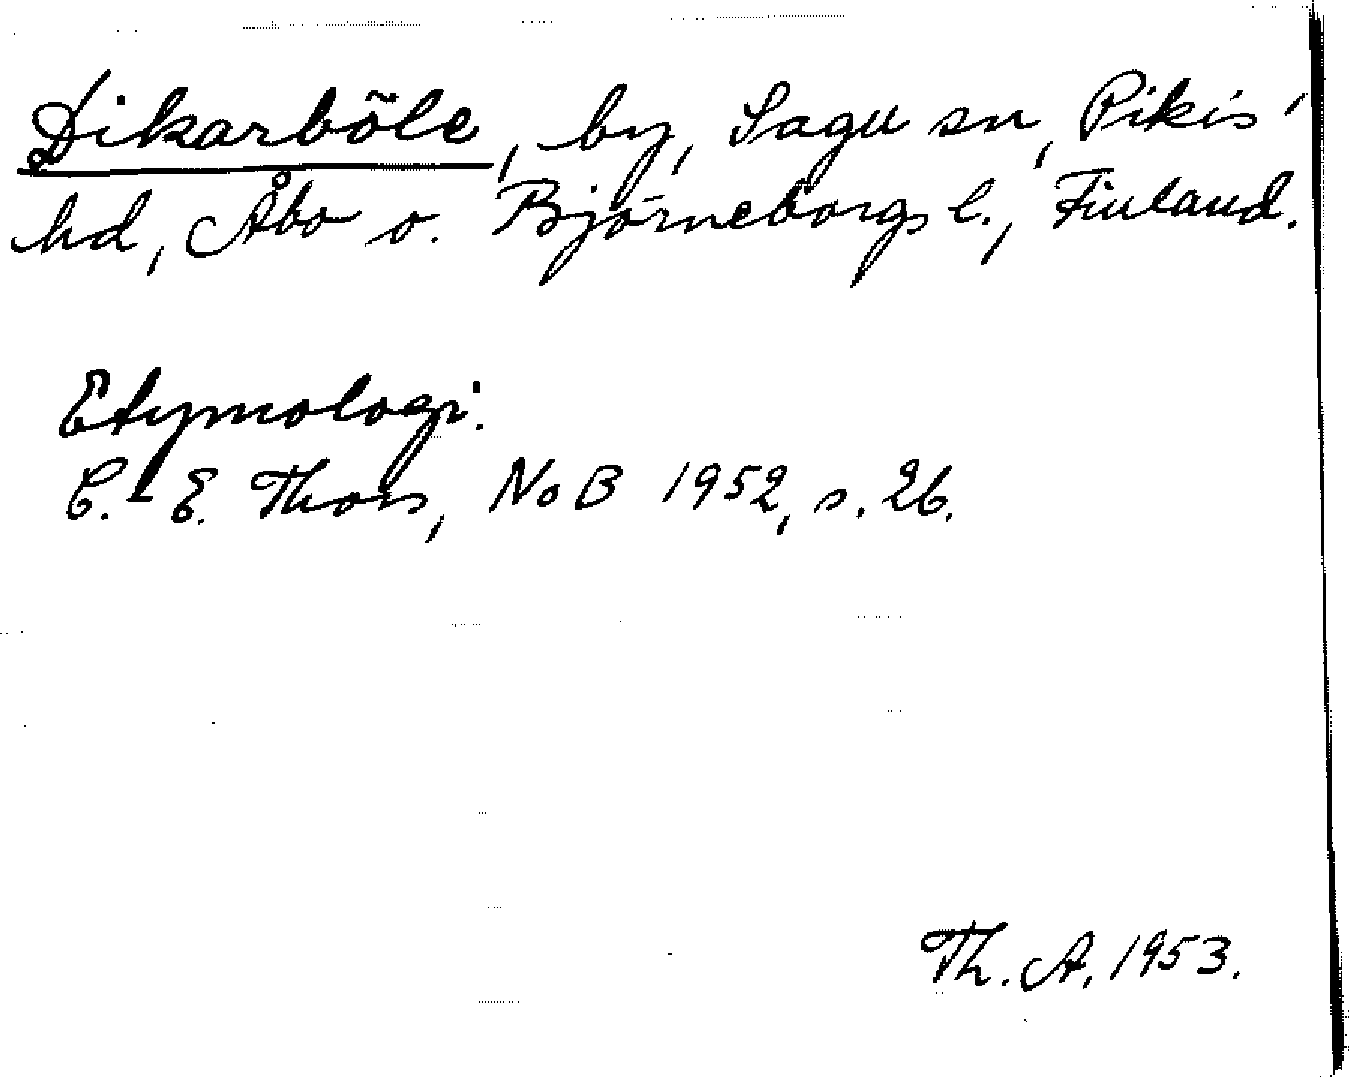 Dikarböle, by, Sagu sn, Pikis'
hd, Åbo o. Björneborgs l., Finland.
Etymologi.
C.-E. Thors, NoB 1952, s. 26.
Th. A. 1953.